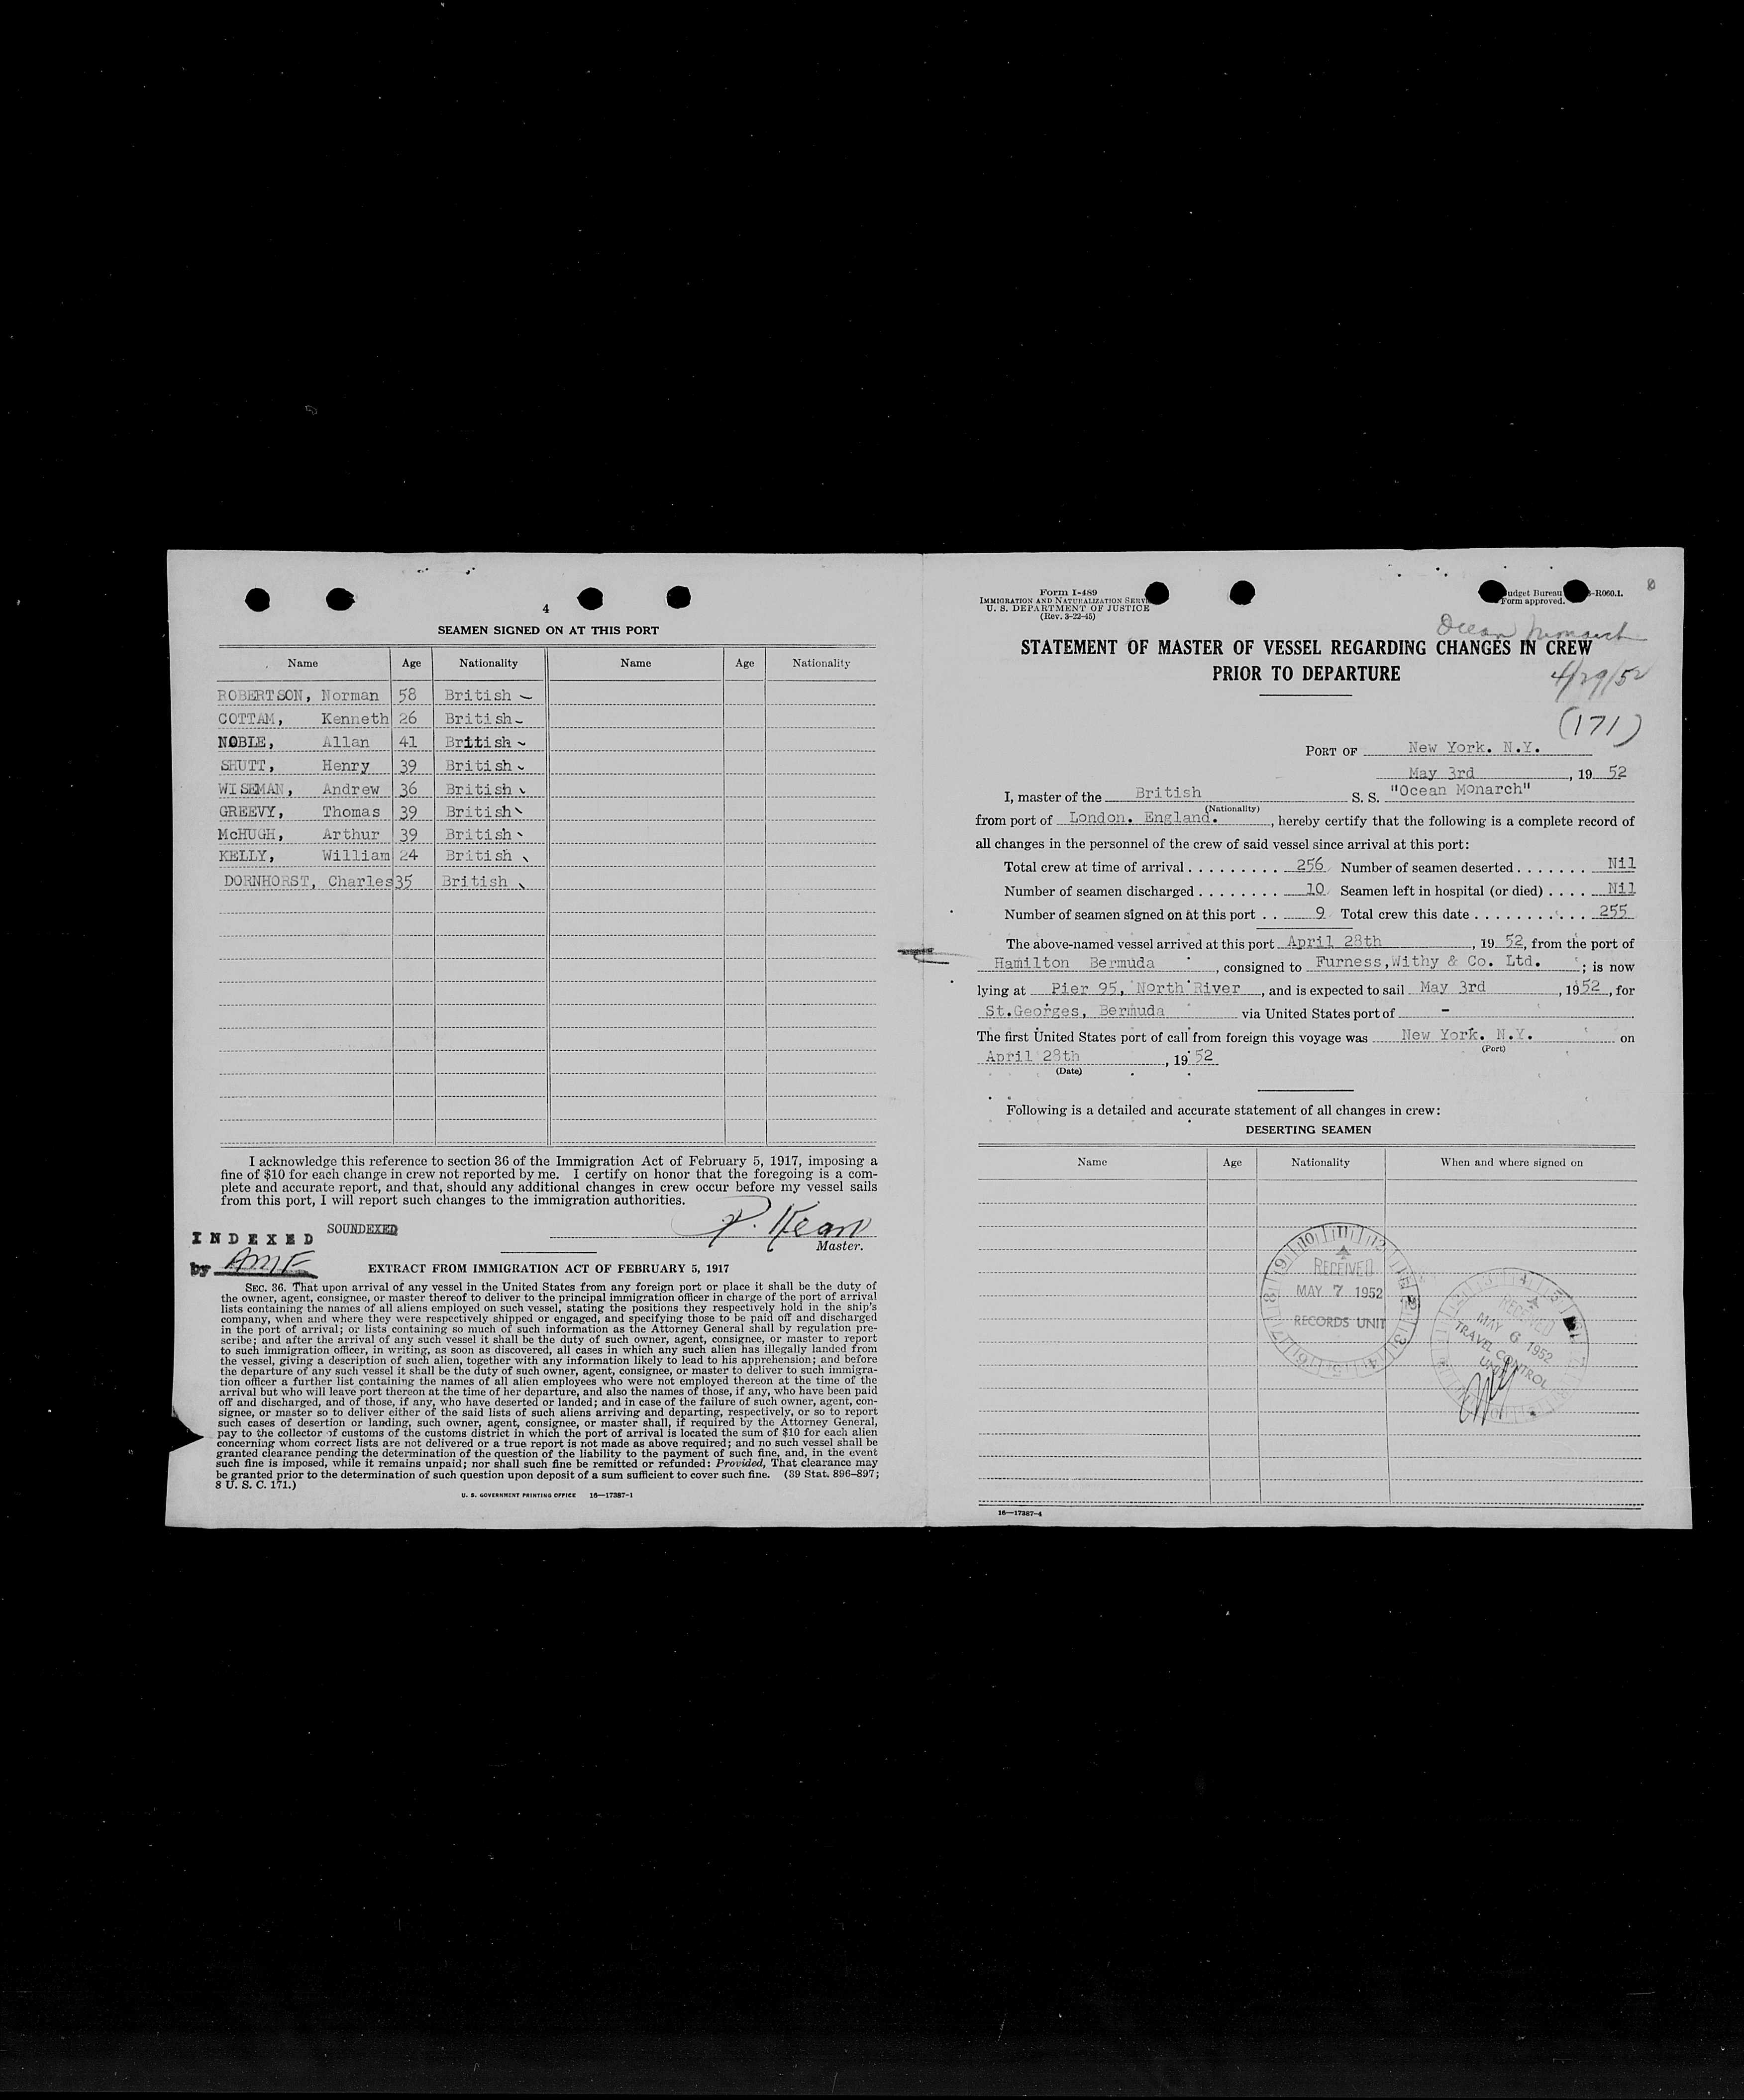 4
SEAMEN SIGNED ON AT THIS PORT
Name Age Nationality Name Age Nationality
ROBERTSON, Norman 58 British
COTTAM, Kenneth 26 British
NOBLE, Allan 41 British
SHUTT, Henry 39 British
WISEMAN, Andrew 36 British
GREEVY, Thomas 39 British
McHUGH, Arthur 39 British
KELLY, William 24 British
DORNHORST, Charles 35 British
I acknowledge this reference to section 36 of the Immigration Act of February 5, 1917, imposing a
fine of $10 for each change in crew not reported by me. I certify on honor that the foregoing is a com-
plete and accurate report, and that, should any additional changes in crew occur before my vessel sails
from this port, I will report such changes to the immigration authorities.
P. Kean
Master.
INDEXED SOUNDEXED
by AMF
EXTRACT FROM IMMIGRATION ACT OF FEBRUARY 5, 1917
SEC. 36. That upon arrival of any vessel in the United States from any foreign port or place it shall be the duty of
the owner, agent, consignee, or master thereof to deliver to the principal immigration officer in charge of the port of arrival
lists containing the names of all aliens employed on such vessel, stating the positions they respectively hold in the ship's
company, when and where they were respectively shipped or engaged, and specifying those to be paid off and discharged
in the port of arrival; or lists containing so much of such information as the Attorney General shall by regulation pre-
scribe; and after the arrival of any such vessel it shall be the duty of such owner, agent, consignee, or master to report
to such immigration officer, in writing, as soon as discovered, all cases in which any such alien has illegally landed from
the vessel, giving a description of such alien, together with any information likely to lead to his apprehension; and before
the departure of any such vessel it shall be the duty of such owner, agent, consignee, or master to deliver to such immigra-
tion officer a further list containing the names of all alien employees who were not employed thereon at the time of the
arrival but who will leave port thereon at the time of her departure, and also the names of those, if any, who have been paid
off and discharged, and of those, if any, who have deserted or landed; and in case of the failure of such owner, agent, con-
signee, or master so to deliver either of the said lists of such aliens arriving and departing, respectively, or so to report
such cases of desertion or landing, such owner, agent, consignee, or master shall, if required by the Attorney General,
pay to the collector of customs of the customs district in which the port of arrival is located the sum of $10 for each alien
concerning whom correct lists are not delivered or a true report is not made as above required; and no such vessel shall be
granted clearance pending the determination of the question of the liability to the payment of such fine, and, in the event
such fine is imposed, while it remains unpaid; nor shall such fine be remitted or refunded: Provided, That clearance may
be granted prior to the determination of such question upon deposit of a sum sufficient to cover such fine. (39 Stat. 896-897;
8 U. S. C. 171.)
U. S. GOVERNMENT PRINTING OFFICE 16—17387-1
Form I-489
IMMIGRATION AND NATURALIZATION
U. S. DEPARTMENT OF JUSTICE
(Rev. 3-22-45)
Bureau
Form approved.
-R060.1.
Ocean Monarch
STATEMENT OF MASTER OF VESSEL REGARDING CHANGES IN CREW
PRIOR TO DEPARTURE
4/29/52
(171)
PORT OF New York. N.Y.
May 3rd, 19 52
I, master of the British S. S. "Ocean Monarch"
(Nationality)
from port of London. England., hereby certify that the following is a complete record of
all changes in the personnel of the crew of said vessel since arrival at this port:
Total crew at time of arrival . . . . . . . . . 256 Number of seamen deserted . . . . . . . Nil
Number of seamen discharged . . . . . . . . 10 Seamen left in hospital (or died) . . . . Nil
Number of seamen signed on at this port . . 9 Total crew this date . . . . . . . . . . . . 255
The above-named vessel arrived at this port April 28th, 19 52, from the port of
Hamilton Bermuda, consigned to Furness, Withy & Co. Ltd.; is now
lying at Pier 95, North River, and is expected to sail May 3rd, 1952, for
St.Georges, Bermuda via United States port of -
The first United States port of call from foreign this voyage was New York. N.Y. on
(Port)
April 28th, 19 52
(Date)
Following is a detailed and accurate statement of all changes in crew:
DESERTING SEAMEN
Name Age Nationality When and where signed on
RECEIVED
MAY 7 1952
RECORDS UNIT
RECEIVED
MAY 6 1952
TRAVEL CONTROL
UNIT
16—17387-4